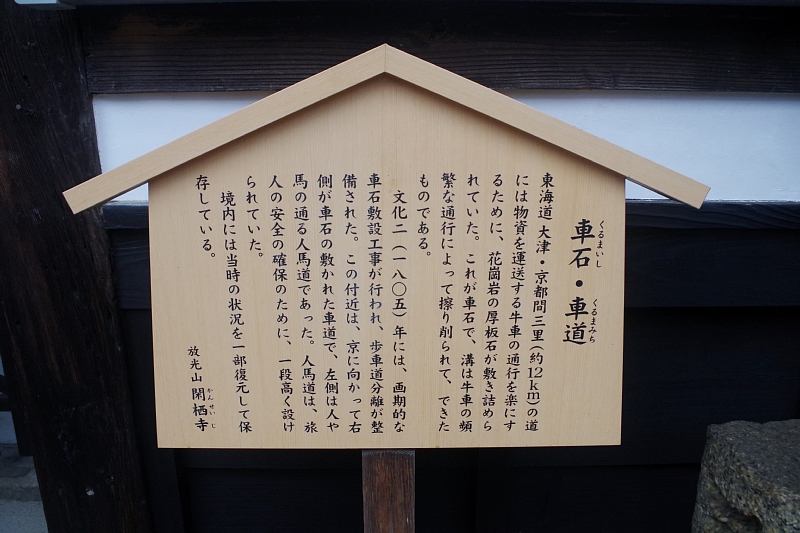 車石・車道
くるまいし くるまみち
東海道 大津・京都間三里(約12km)の道
には物資を運送する牛車の通行を楽にす
るために、花崗岩の厚板石が敷き詰めら
れていた。これが車石で、溝は牛車の頻
繁な通行によって擦り削られて、できた
ものである。
文化二(一八〇五)年には、画期的な
車石敷設工事が行われ、歩車道分離が整
備された。この付近は、京に向かって右
側が車石の敷かれた車道で、左側は人や
馬の通る人馬道であった。人馬道は、旅
人の安全の確保のために、一段高く設け
られていた。
境内には当時の状況を一部復元して保
存している。
放光山 閑栖寺
かんせいじ